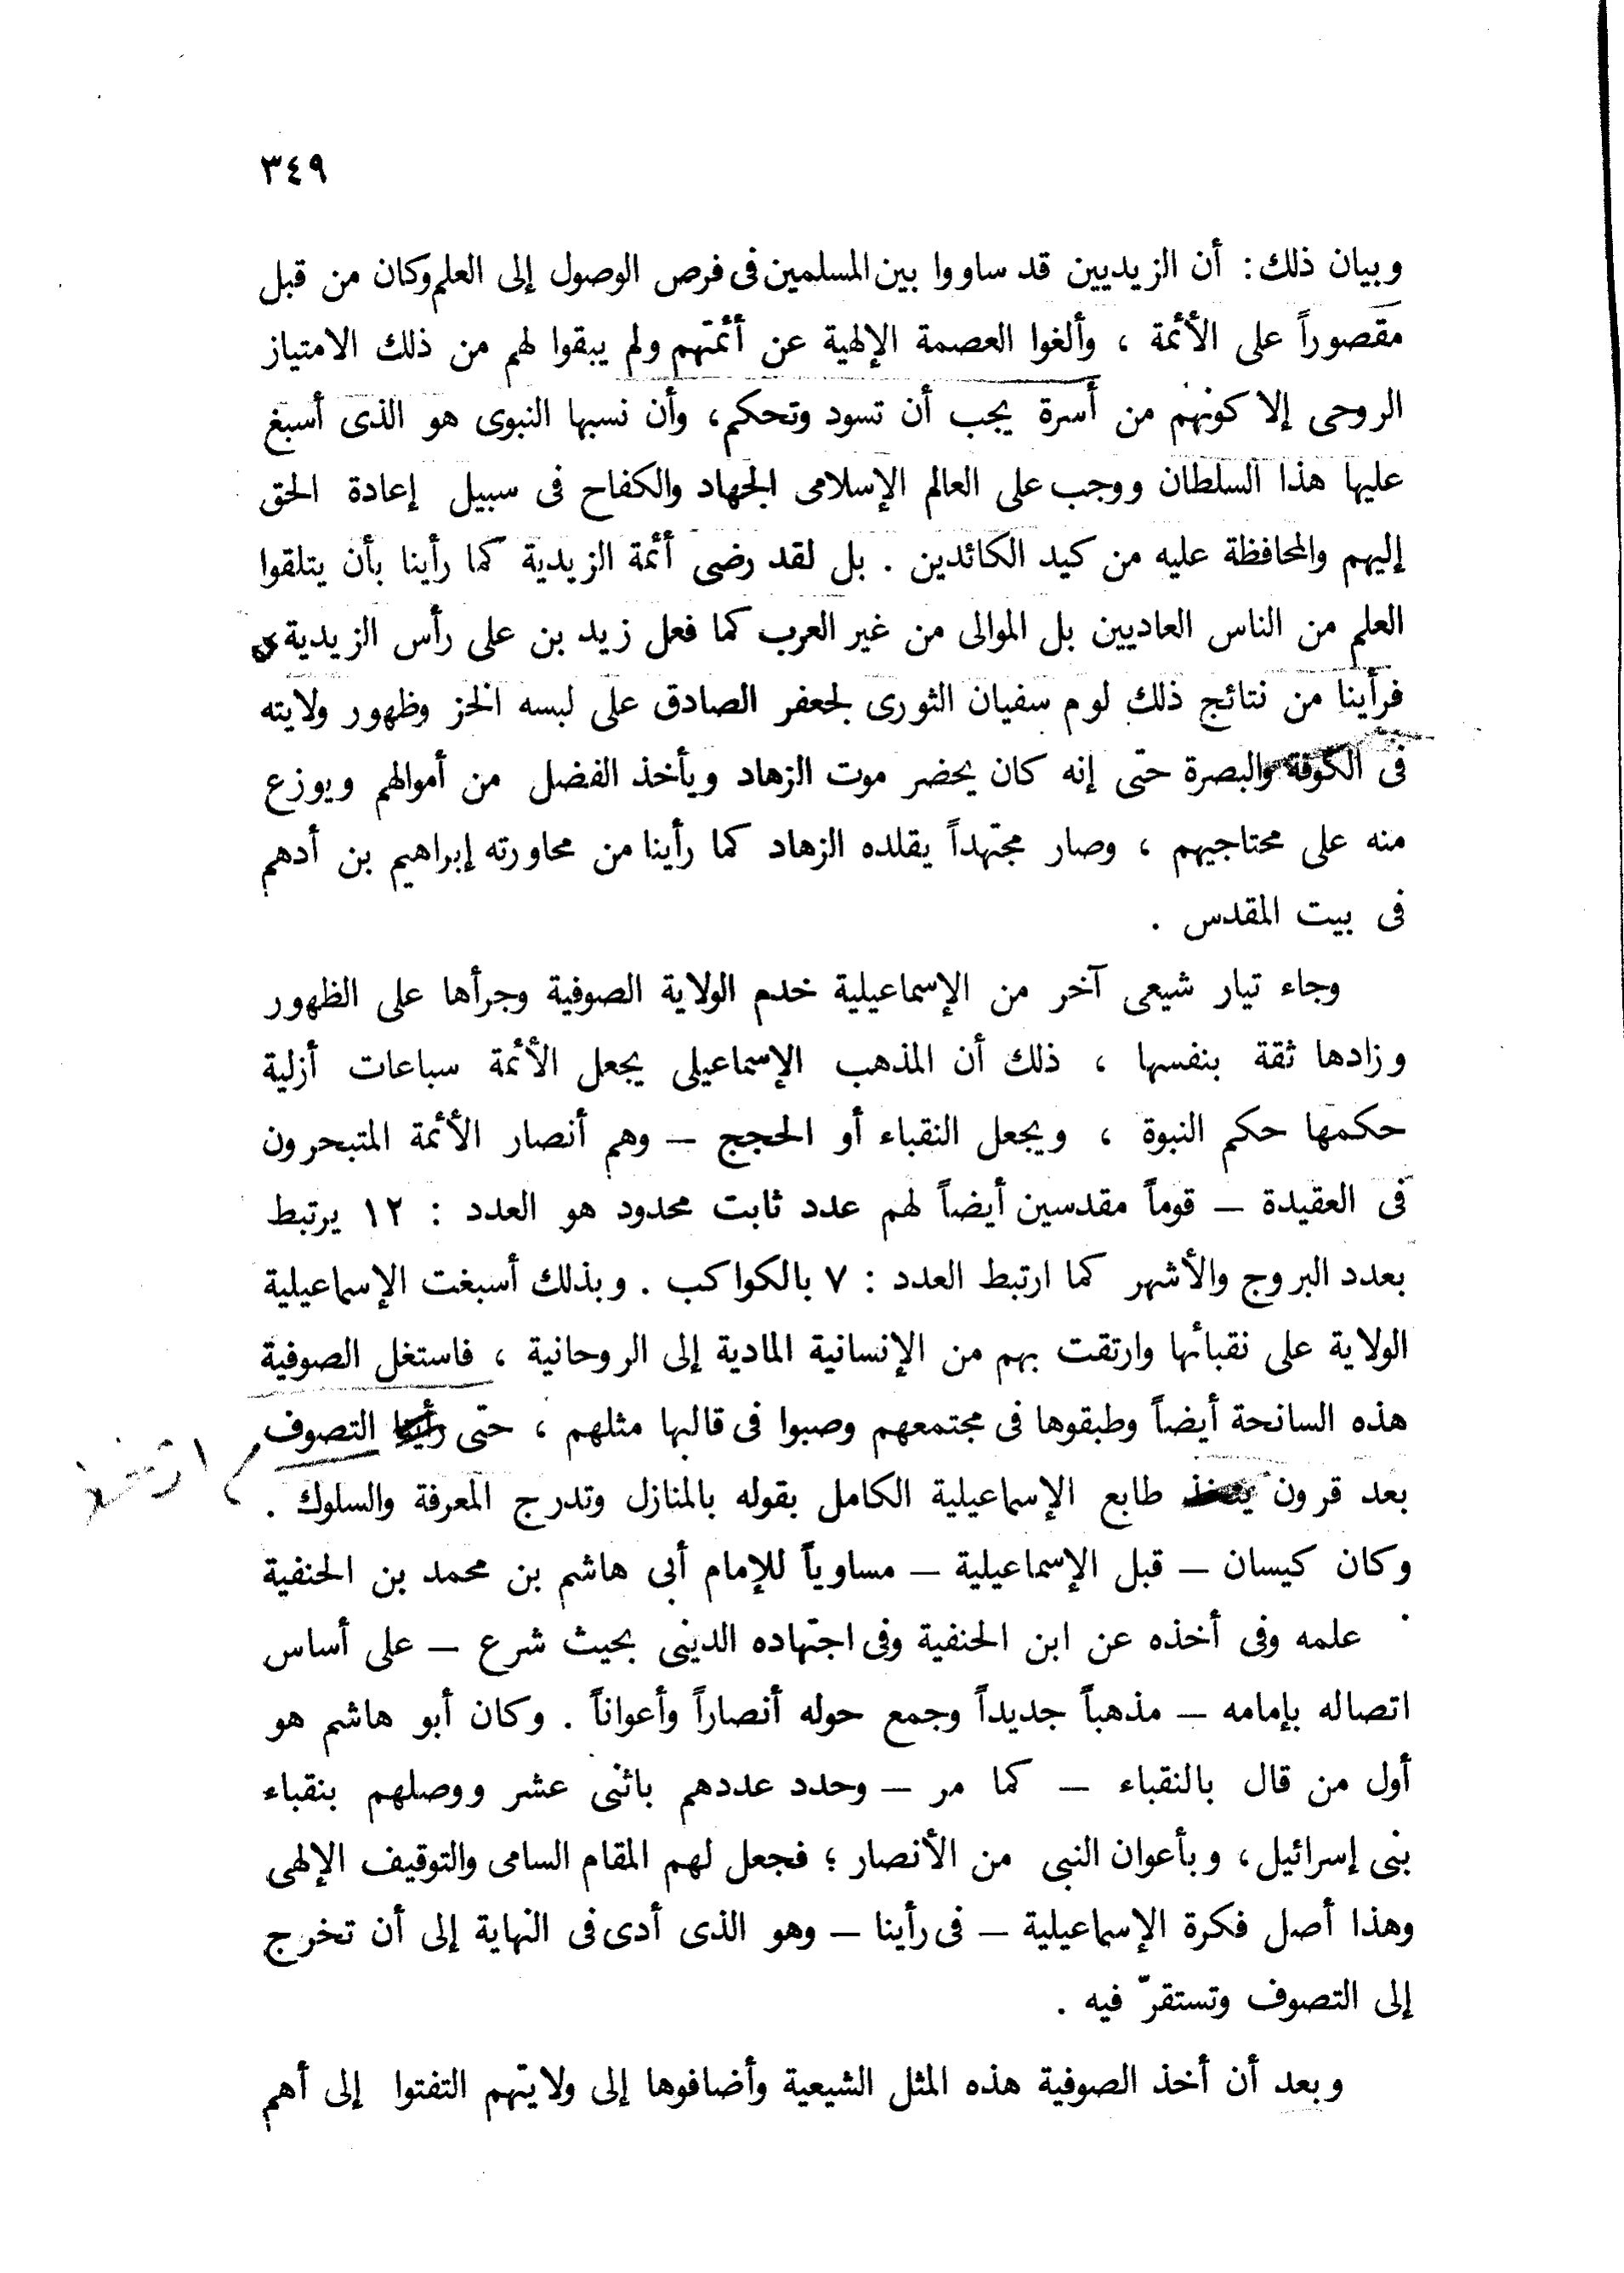 ٣٤٩
وبيان ذلك: أن الزيديين قد ساووا بين المسلمين فى فرص الوصول إلى العلم وكان من قبل
مقصوراً على الأئمة ، وألغوا العصمة الإلهية عن أئمتهم ولم يبقوا لهم من ذلك الامتياز
الروحى إلا كونهم من أسرة يجب أن تسود وتحكم، وأن نسبها النبوى هو الذى أسبغ
عليها هذا السلطان ووجب على العالم الإسلامى الجهاد والكفاح فى سبيل إعادة الحق
إليهم والمحافظة عليه من كيد الكائدين . بل لقد رضى أئمة الزيدية كما رأينا بأن يتلقوا
العلم من الناس العاديين بل الموالى من غير العرب كما فعل زيد بن على رأس الزيدية
فرأينا من نتائج ذلك لوم سفيان الثورى لجعفر الصادق على لبسه الخز وظهور ولايته
فى الكوفة والبصرة حتى إنه كان يحضر موت الزهاد ويأخذ الفضل من أموالهم ويوزع
منه على محتاجيهم ، وصار مجتهداً يقلده الزهاد كما رأينا من محاورته إبراهيم بن أدهم
فى بيت المقدس .
وجاء تيار شيعى آخر من الإسماعيلية خدم الولاية الصوفية وجرأها على الظهور
وزادها ثقة بنفسها ، ذلك أن المذهب الإسماعيلى يجعل الأئمة سباعات أزلية
حكمها حكم النبوة ، ويجعل النقباء أو الحجج – وهم أنصار الأئمة المتبحرون
فى العقيدة – قوماً مقدسين أيضاً لهم عدد ثابت محدود هو العدد : ١٢ يرتبط
بعدد البروج والأشهر كما ارتبط العدد : ٧ بالكواكب . وبذلك أسبغت الإسماعيلية
الولاية على نقبائها وارتقت بهم من الإنسانية المادية إلى الروحانية ، فاستغل الصوفية
هذه السانحة أيضاً وطبقوها فى مجتمعهم وصبوا فى قالبها مثلهم ، حتى رأينا التصوف
بعد قرون يتخذ طابع الإسماعيلية الكامل بقوله بالمنازل وتدرج المعرفة والسلوك .
وكان كيسان – قبل الإسماعيلية – مساوياً للإمام أبى هاشم بن محمد بن الحنفية
علمه وفى أخذه عن ابن الحنفية وفى اجتهاده الدينى بحيث شرع – على أساس
اتصاله بإمامه – مذهباً جديداً وجمع حوله أنصاراً وأعواناً . وكان أبو هاشم هو
أول من قال بالنقباء – كما مر – وحدد عددهم باثنى عشر ووصلهم بنقباء
بنى إسرائيل، وبأعوان النبى من الأنصار ؛ فجعل لهم المقام السامى والتوقيف الإلهى
وهذا أصل فكرة الإسماعيلية – فى رأينا – وهو الذى أدى فى النهاية إلى أن تخرج
إلى التصوف وتستقرّ فيه .
وبعد أن أخذ الصوفية هذه المثل الشيعية وأضافوها إلى ولايتهم التفتوا إلى أهم